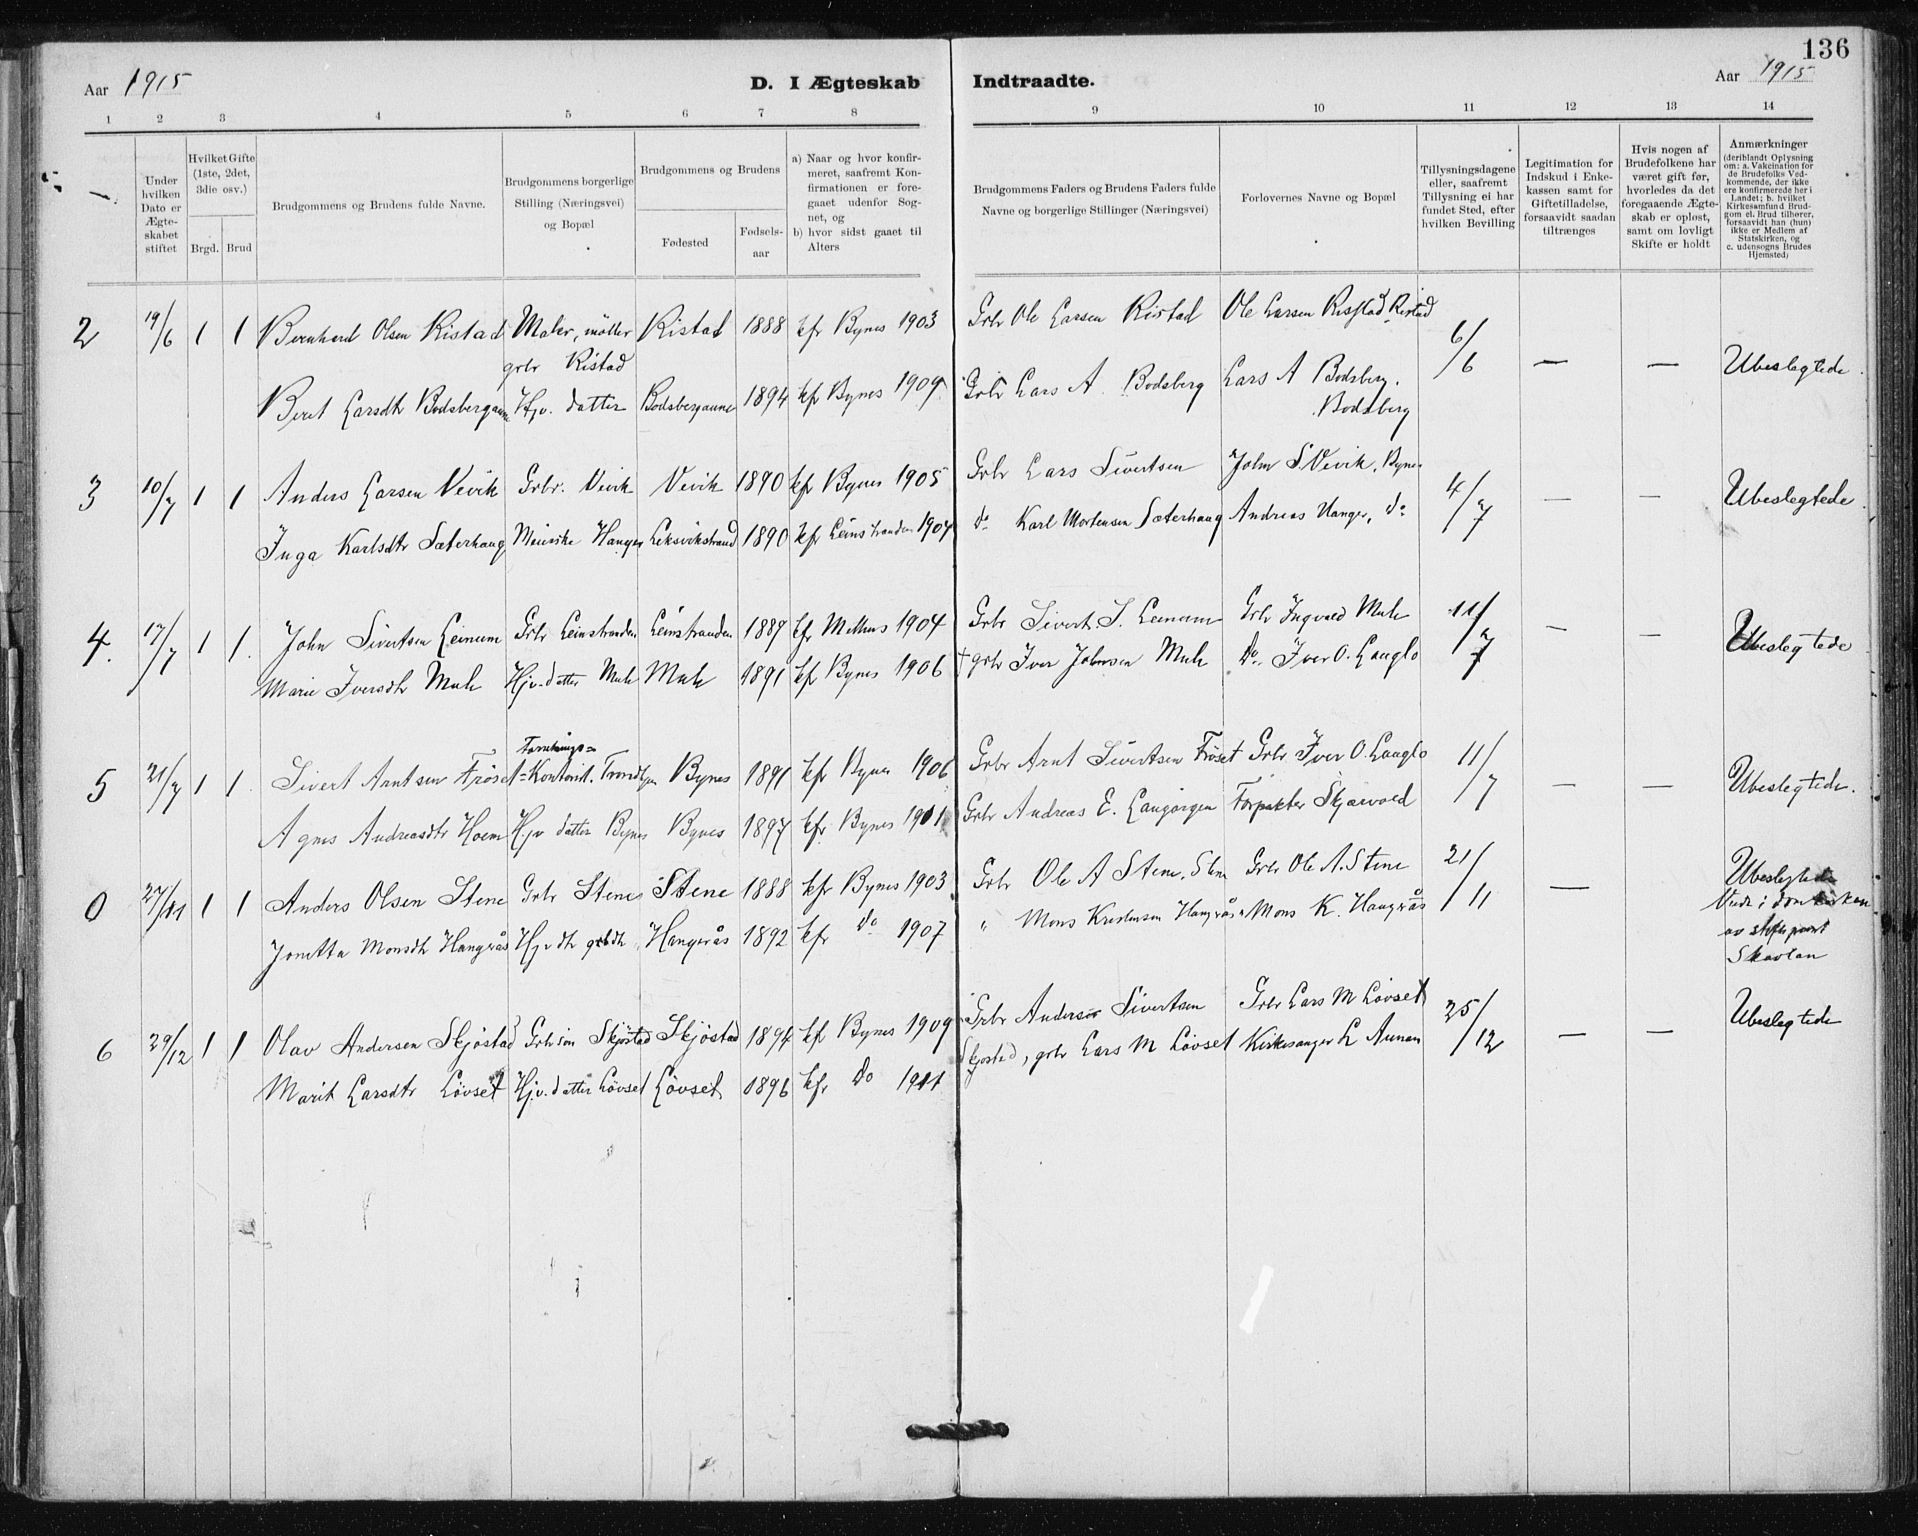 136
Aar 1915 D. I Ægteskab Indtraadte. Aar 1915
1 2 3 4 5 6 7 8 9 10 11 12 13 14
Under hvilken Dato er Ægteskabet stiftet
Hvilket Gifte (1ste, 2det, 3die osv.)
Brgd. Brud
Brudgommens og Brudens fulde Navne.
Brudgommens borgerlige Stilling (Næringsvei) og Bopæl
Brudgommens og Brudens
Fødested
Fødsels-aar
a) Naar og hvor konfirmeret, saafremt Konfirmationen er foregaaet udenfor Sognet, og
b) hvor sidst gaaet til Alters
Brudgommens Faders og Brudens Faders fulde Navne og borgerlige Stillinger (Næringsvei)
Forlovernes Navne og Bopæl
Tillysningsdagene eller, saafremt Tillysning ei har fundet Sted, efter hvilken Bevilling
Legitimation for Indskud i Enkekassen samt for Giftetilladelse, forsaavidt saadan tiltrænges
Hvis nogen af Brudefolkene har været gift før, hvorledes da det foregaaende Ægteskab er opløst, samt om lovligt Skifte er holdt
Anmærkninger
(deriblandt Oplysning om: a. Vakcination for de Brudefolks Vedkommende, der ikke ere konfirmerede her i Landet; b. hvilket Kirkesamfund Brudgom el. Brud tilhører, forsaavidt han (hun) ikke er Medlem af Statskirken, og c. udensogns Brudes Hjemsted)
2 19/6 1 1 Bernhard Olsen Ristad Maler, møller Ristad 1888 kfr Bynes 1903 Grbr Ole Larsen Ristad Ole Larsen Ristad Ristad 6/6 — — Ubeslegtede.
grbr Ristad
Beret Larsdtr Bodsbergaune Hjv. datter Bodsbergaune 1894 kfr Bynes 1909 Grbr Lars A Bodsberg Lars A Bodsberg.
Bodsberg
3 10/7 1 1 Anders Larsen Vevik Grbr. Vevik Vevik 1890 kfr Bynes 1905 Grbr Lars Sivertsen John S Vevik, Bynes 4/7 — — Ubeslegtede.
Inga Karlsdtr Sæterhaug Meierske Hanger Leksvikstrand 1890 kfr Leinstranden 1904 do Karl Mortensen Sæterhaug Andreas Hanger, do
4. 17/7 1 1. John Sivertsen Leinum Grbr Leinstranden Leinstranden 1887 kfr Melhus 1904 Grbr Sivert. S. Leinum Grbr Ingvald Mule 11/7 — — Ubeslegtede
Marie Iversdtr Mule Hjv. datter Mule Mule 1891 kfr Bynes 1906 † grbr Iver Johnsen Mule Do. Iver O. Langlo
5 21/7 1 1. Sivert Arntsen Frøset Forretnings=Kontorist. Trondhjem Bynes 1891 kfr Bynes 1906 Grbr Arnt Sivertsen Frøset Grbr Iver O. Langlo 11/7 — — Ubeslegtede.
Agnes Andreasdtr Hoem Hjv datter Bynes Bynes 1897 kfr. Bynes 1911 Grbr Andreas E. Langørgen Forpakter Skjærvold
0 27/11 1 1 Anders Olsen Stene Grbr Stene Stene 1888 kfr Bynes 1903 Grbr Ole A Stene, Stene Grbr Ole A. Stene 21/11 — Ubeslegtede
Viede i domkirken
Jonetta Monsdtr Hangrås Hjv dtr grbdtr Hangrås 1892 kfr do 1907 " Mons Kristensen Hangrås " Mons K. Hangrås
av stiftsprovst
Skavlan
6 29/12 1 1 Olav Andersen Skjøstad Grbr søn Skjøstad Skjøstad 1894 kfr Bynes 1909 Grbr Anders Sivertsen Grbr Lars M Løvset 25/12 — — Ubeslegtede
Marit Larsdtr Løvset Hjv. datter Løvset Løvset 1896 kfr Do 1911 Skjøstad, grbr Lars M Løvset Kirkesanger L Aunan